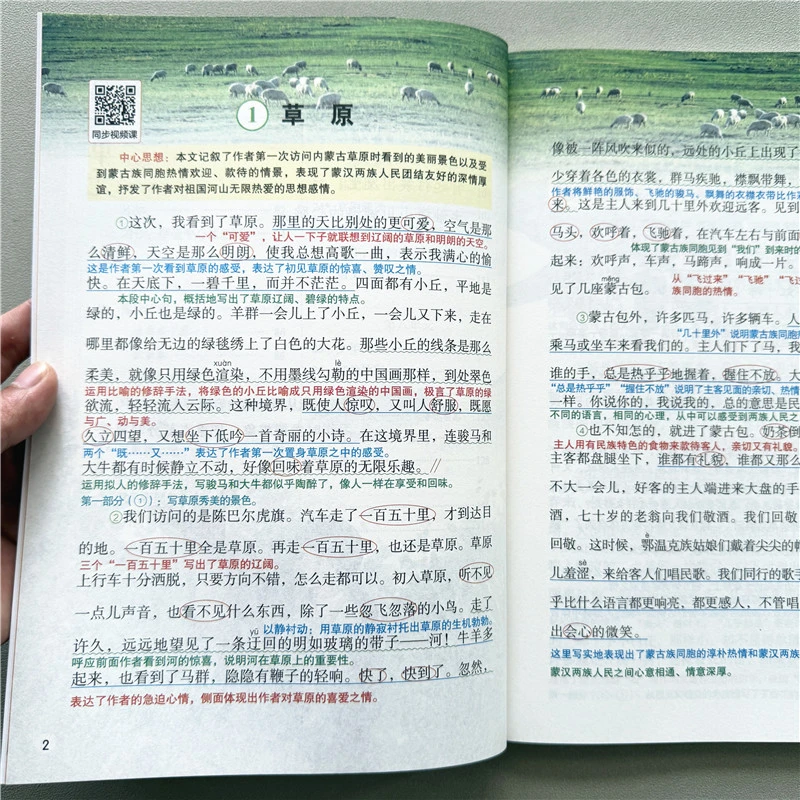 同步视频课
1 草原
中心思想：本文记叙了作者第一次访问内蒙古草原时看到的美丽景色以及受
到蒙古族同胞热情欢迎、款待的情景，表现了蒙汉两族人民团结友好的深情厚
谊，抒发了作者对祖国河山无限热爱的思想感情。
①这次，我看到了草原。那里的天比别处的更可爱，空气是那
一个“可爱”，让人一下子就联想到辽阔的草原和明朗的天空。
么清鲜，天空是那么明朗，使我总想高歌一曲，表示我满心的愉
这是作者第一次看到草原的感受，表达了初见草原的惊喜、赞叹之情。
快。在天底下，一碧千里，而并不茫茫。四面都有小丘，平地是
本段中心句，概括地写出了草原辽阔、碧绿的特点。
绿的，小丘也是绿的。羊群一会儿上了小丘，一会儿又下来，走在
哪里都像给无边的绿毯绣上了白色的大花。那些小丘的线条是那么
xuàn lè
柔美，就像只用绿色渲染，不用墨线勾勒的中国画那样，到处翠色
运用比喻的修辞手法，将绿色的小丘比喻成只用绿色渲染的中国画，极言了草原的绿
欲流，轻轻流入云际。这种境界，既使人惊叹，又叫人舒服，既愿
与广、动与美。
久立四望，又想坐下低吟一首奇丽的小诗。在这境界里，连骏马和
两个“既……又……”表达了作者第一次置身草原之中的感受。
大牛都有时候静立不动，好像回味着草原的无限乐趣。//
运用拟人的修辞手法，写骏马和大牛都似乎陶醉了，像人一样在享受和回味。
第一部分（①）：写草原秀美的景色。
②我们访问的是陈巴尔虎旗。汽车走了一百五十里，才到达目
的地。一百五十里全是草原。再走一百五十里，也还是草原。草原
三个“一百五十里”写出了草原的辽阔。
上行车十分洒脱，只要方向不错，怎么走都可以。初入草原，听不见
一点儿声音，也看不见什么东西，除了一些忽飞忽落的小鸟。走了
yū 以静衬动：用草原的静寂衬托出草原的生机勃勃。
许久，远远地望见了一条迂回的明如玻璃的带子——河！牛羊多
呼应前面作者看到河的惊喜，说明河在草原上的重要性。
起来，也看到了马群，隐隐有鞭子的轻响。快了，快到了。忽然，
表达了作者的急迫心情，侧面体现出作者对草原的喜爱之情。
2
像被一阵风吹来似的，远处的小丘上出现了
少穿着各色的衣裳，群马疾驰，襟飘带舞，
作者将鲜艳的服饰、飞驰的骏马、飘舞的衣襟衣带比作彩
来。这是主人来到几十里外欢迎远客。见到
马头，欢呼着，飞驰着，在汽车左右与前面
体现了蒙古族同胞见到“我们”到来时的
起来：欢呼声，车声，马蹄声，响成一片。
měng 从“飞过来”“飞驰”“飞过
见了几座蒙古包。
族同胞的热情。
③蒙古包外，许多匹马，许多辆车。人
“几十里外”说明蒙古族同胞热
乘马或坐车来看我们的。主人们下了马，我
谁的手，总是热乎乎地握着，握住不放。大
“总是热乎乎”“握住不放”说明了主客见面的亲切、热情
一样。你说你的，我说我的，总的意思是民
不同的语言，相同的心理，从中可以感受到两族人民之
④也不知怎的，就进了蒙古包。奶茶倒
主人用有民族特色的食物来款待客人，亲切又有礼貌。
主客都盘腿坐下，谁都有礼貌，谁都又那么
不大一会儿，好客的主人端进来大盘的手
酒，七十岁的老翁向我们敬酒。我们回敬
è
回敬。这时候，鄂温克族姑娘们戴着尖尖的帽
sè
儿羞涩，来给客人们唱民歌。我们同行的歌手
乎比什么语言都更响亮，都更感人，不管唱
出会心的微笑。
这里写实地表现出了蒙古族同胞的淳朴热情和蒙汉两
蒙汉两族人民之间心意相通、情意深厚。